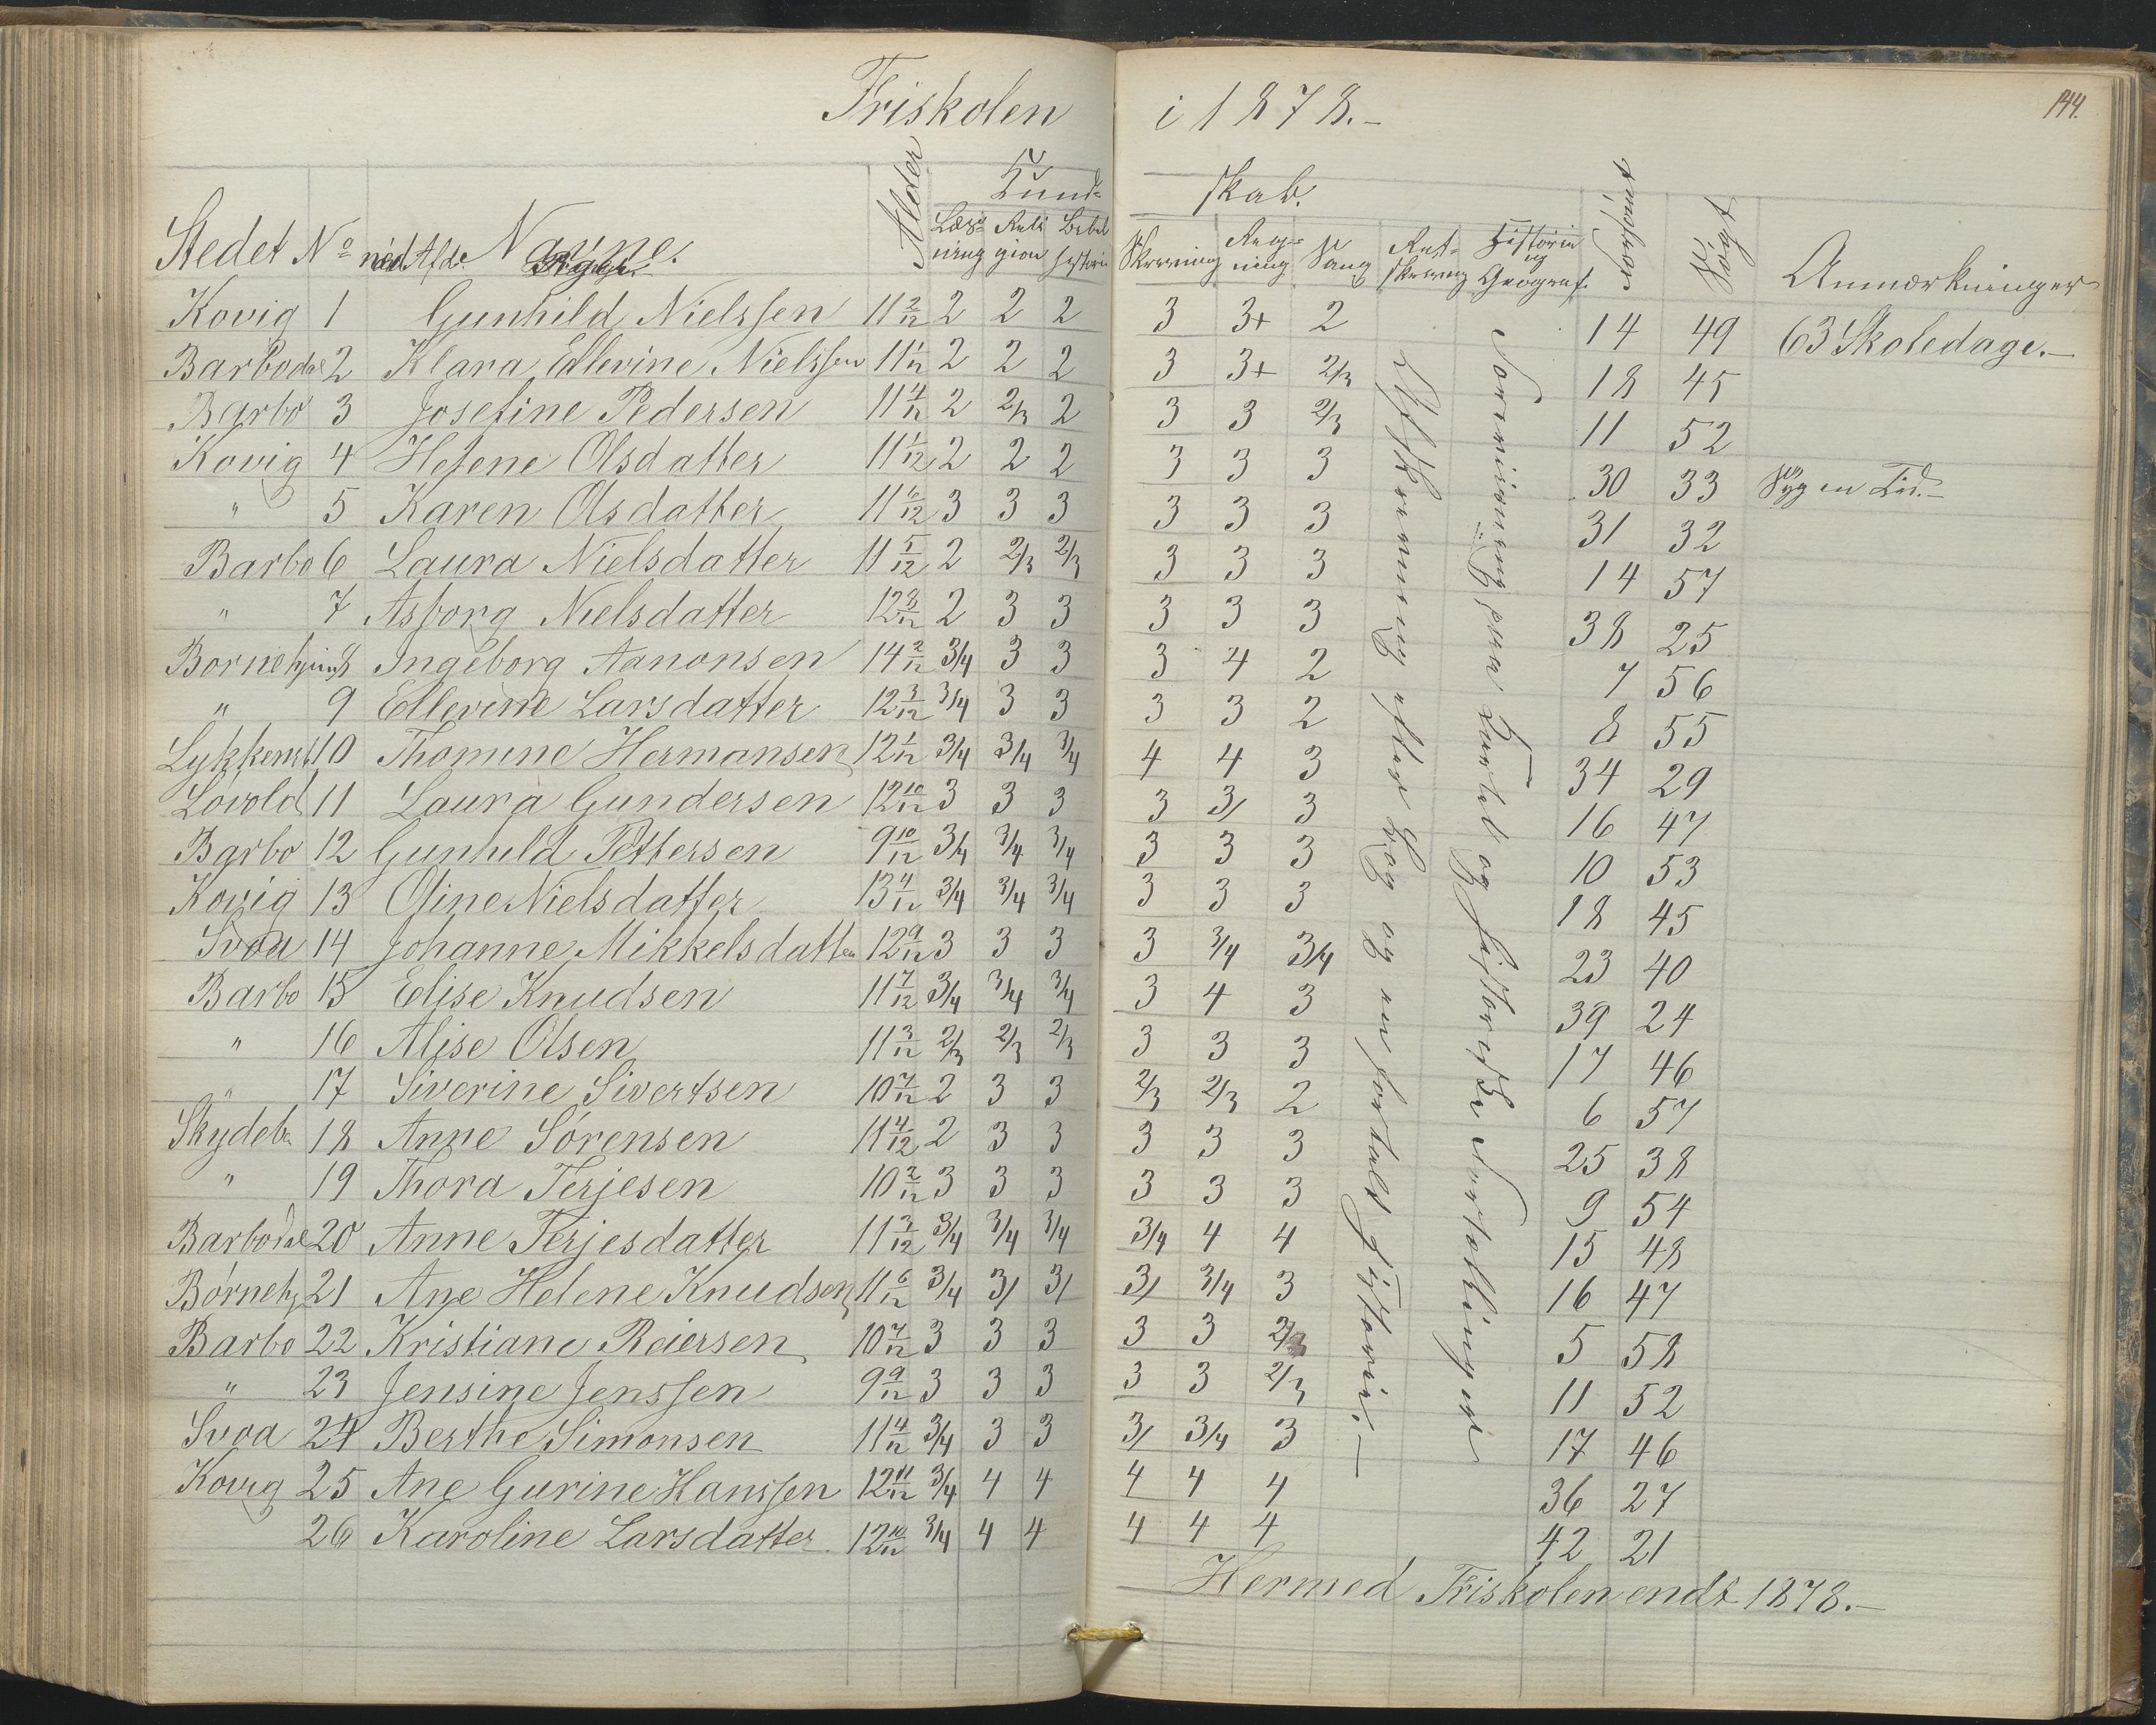 Friskolen i 1878.-
144.
Kund= skab.
Stedet No ned. Afd. Navne. Piger. Alder Læs=ning Reli gion Bibel historie Skrivning Reg=ning Sang Ret=skrivning Historie og Geograf. forsømt Søgt Anmærkninger
Kovig 1 Gunhild Nielssen 11 2/12 2 2 2 3 3+ 2 14 49 63 Skoledage.-
Barbodal 2 Klara Edlevine Nielssen 11 1/12 2 2 2 3 3+ 2/3 18 45
Barbo 3 Josefine Pedersen 11 4/12 2 2/3 2 3 3 2/3 11 52
Kovig 4 Helene Olsdatter 11 1/12 2 2 2 3 3 3 30 33 Syg en Tid.-
" 5 Karen Olsdatter 11 6/12 3 3 3 3 3 3 31 32
Barbo 6 Laura Nielsdatter 11 5/12 2 2/3 2/3 3 3 3 14 57
" 7 Asborg Nielsdatter 12 8/12 2 3 3 3 3 3 38 25
Bornehjem 8 Ingeborg Aanonsen 14 2/12 3/4 3 3 3 4 2 7 56
" 9 Ellevine Larsdatter 12 3/12 3/4 3 3 3 3 2 8 55
Lykkens 10 Thomine Hermansen 12 1/12 3/4 3/4 3/4 4 4 3 34 29
Lovold 11 Laura Gundersen 12 10/12 3 3 3 3 3/ 3 16 47
Barbo 12 Gunhild Pettersen 9 10/12 3/4 3/4 3/4 3 3 3 10 53
Kovig 13 Oline Nielsdatter 13 4/12 3/4 3/4 3/4 3 3 3 18 45
Svoa 14 Johanne Mikkelsdatter 12 9/12 3 3 3 3 3/4 3/4 23 40
Barbo 15 Elise Knudsen 11 7/12 3/4 3/4 3/4 3 4 3 39 24
" 16 Alise Olsen 11 3/12 2/3 2/3 2/3 3 3 3 17 46
" 17 Siverine Sivertsen 10 7/12 2 3 3 2/3 2/3 2 6 57
Skydeb. 18 Anne Sørensen 11 4/12 2 3 3 3 3 3 25 38
" 19 Thora Terjesen 10 2/12 3 3 3 3 3 3 9 54
Barbodal 20 Anne Terjesdatter 11 3/12 3/4 3/4 3/4 3/4 4 4 15 48
Børneh 21 Ane Helene Knudsen 11 6/12 3/4 3/ 3/ 3/ 3/4 3 16 47
Barbo 22 Kristiane Reiersen 10 7/12 3 3 3 3 3 2/3 5 58
" 23 Jensine Jenssen 9 9/12 3 3 3 3 3 2/3 11 52
Svoa 24 Berthe Simonsen 11 4/12 3/4 3 3 3/ 3/4 3 17 46
Kovig 25 Ane Gurine Hanssen 12 11/12 3/4 4 4 4 4 4 36 27
26 Karoline Larsdatter. 12 10/12 3/4 4 4 4 4 4 42 21
Afskrivning efter Bog og en fortalt Historie.-
Forevisning paa Kartet og historiske Fortællinger
Hermed Friskolen endt 1878.-